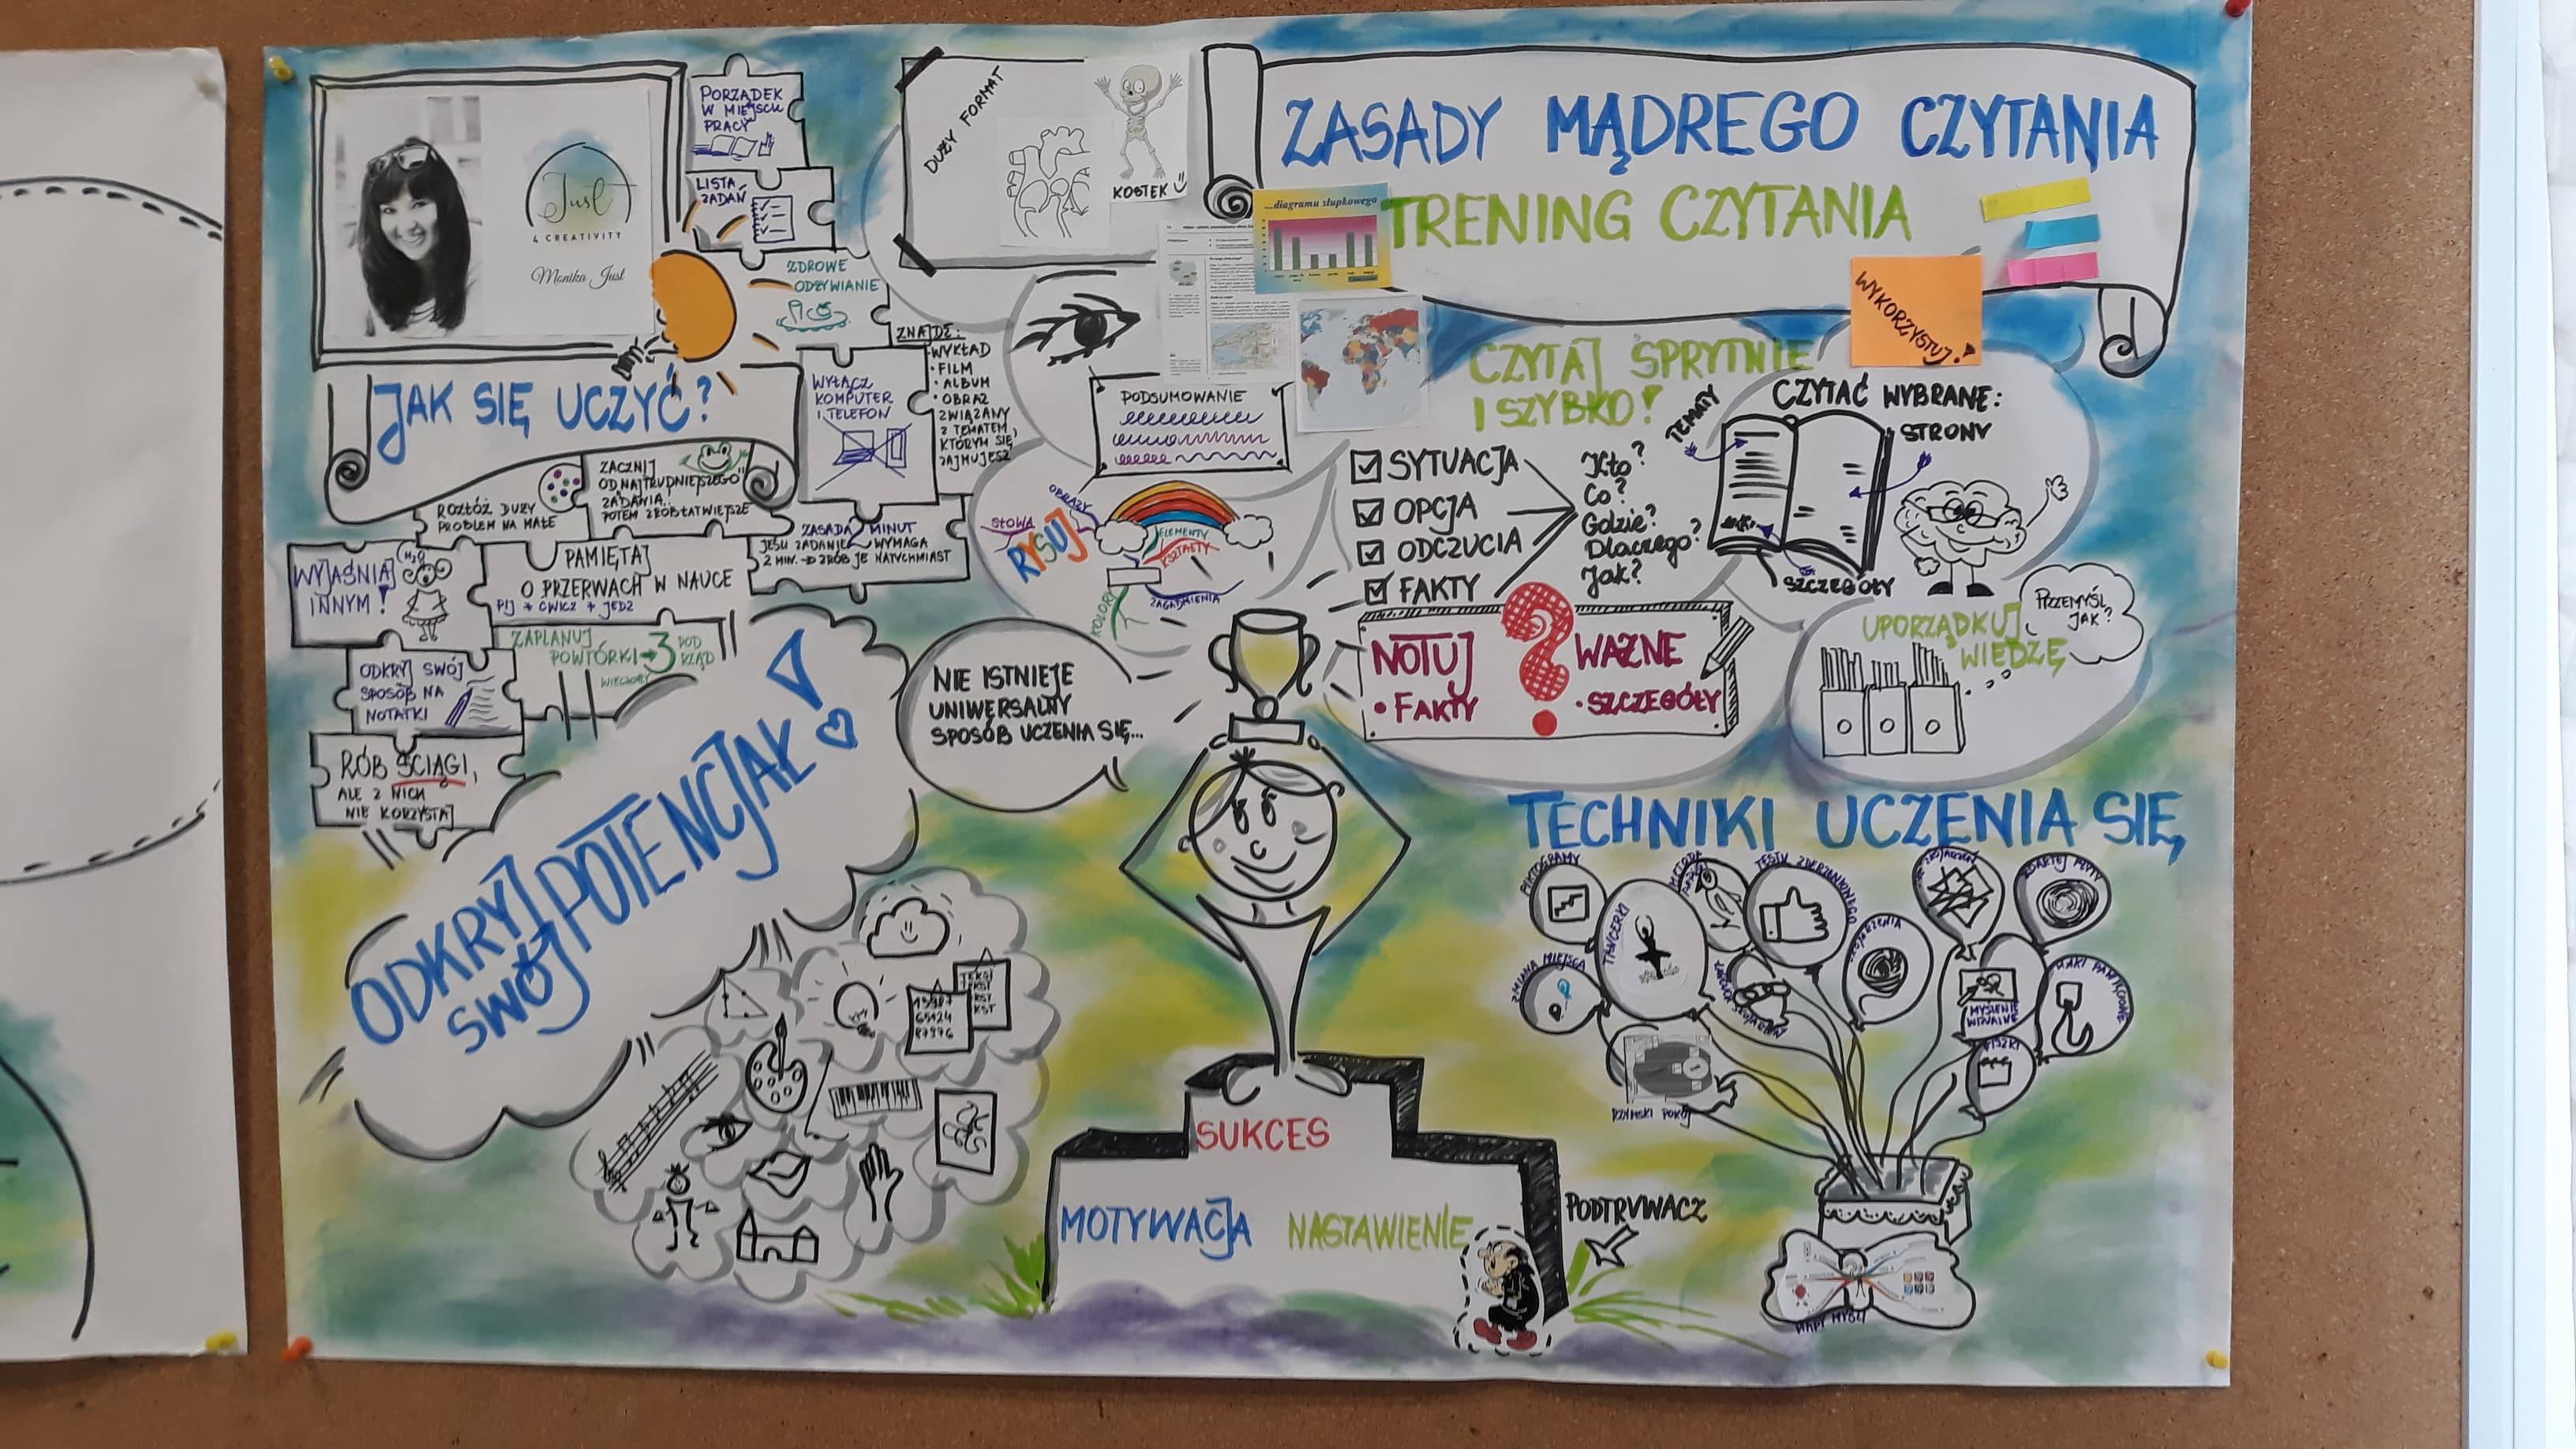 Just
4 CREATIVITY
Monika Just
PORZĄDEK
W MIEJSCU
PRACY
LISTA
ZADAŃ
ZDROWE
ODŻYWIANIE
JAK SIĘ UCZYĆ?
WYŁĄCZ
KOMPUTER
I TELEFON
ZNAJDŹ:
• WYKŁAD
• FILM
• ALBUM
• OBRAZ
ZWIĄZANY
Z TEMATEM,
KTÓRYM SIĘ
ZAJMUJESZ
ROZŁÓŻ DUŻY
PROBLEM NA MAŁE
ZACZNIJ
OD NAJTRUDNIEJSZEGO
ZADANIA,
POTEM ZRÓB ŁATWIEJSZE
ZASADA 2 MINUT
JEŚLI ZADANIE WYMAGA
2 MIN. → ZRÓB JE NATYCHMIAST
WYJAŚNIAJ
INNYM!
H₂O
PAMIĘTAJ
O PRZERWACH W NAUCE
PIJ + ĆWICZ + JEDZ
ZAPLANUJ
POWTÓRKI → 3 POD
RZĄD
WIECZORY
ODKRYJ SWÓJ
SPOSÓB NA
NOTATKI
RÓB ŚCIĄGI,
ALE Z NICH
NIE KORZYSTAJ
ODKRYJ
SWÓJ POTENCJAŁ!
TEKST
15987
65424
87976
DUŻY FORMAT
KOSTEK
ZASADY MĄDREGO CZYTANIA
TRENING CZYTANIA
...diagramu słupkowego
WYKORZYSTUJ!
PODSUMOWANIE
SŁOWA
OBRAZY
RYSUJ
ELEMENTY
KSZTAŁTY
KOLORY
ZAGADNIENIA
CZYTAJ SPRYTNIE
I SZYBKO!
SYTUACJA
OPCJA
ODCZUCIA
FAKTY
Kto?
Co?
Gdzie?
Dlaczego?
Jak?
CZYTAĆ WYBRANE:
TEMATY
STRONY
SZCZEGÓŁY
NOTUJ ? WAŻNE
• FAKTY
• SZCZEGÓŁY
UPORZĄDKUJ
WIEDZĘ
PRZEMYŚL,
JAK?
NIE ISTNIEJE
UNIWERSALNY
SPOSÓB UCZENIA SIĘ...
SUKCES
MOTYWACJA
NASTAWIENIE
PODTRUWACZ
TECHNIKI UCZENIA SIĘ
PIKTOGRAMY
TANCERKI
ZMIANA MIEJSCA
SKOJARZENIA
ZDARTEJ PŁYTY
HAKI PAMIĘCIOWE
MYŚLENIE
WIZUALNE
FISZKI
RZYMSKI POKÓJ
MAPY MYŚLI